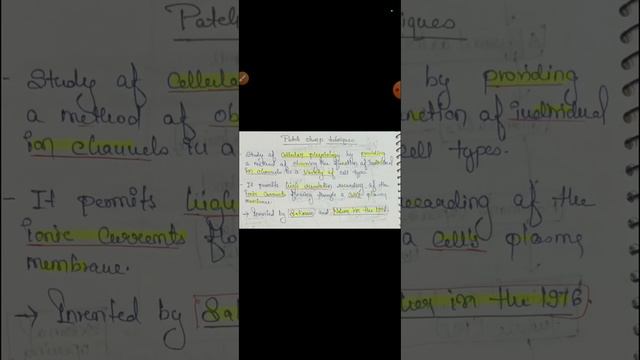 Patch clamp techniques
- Study of Cellular physiology by providing
a method of observing the function of individual
ion channels in a variety of cell types.
- It permits high resolution recording of the
ionic currents flowing through a cell's plasma
membrane.
→ Invented by Sakmann and Neher in the 1976.